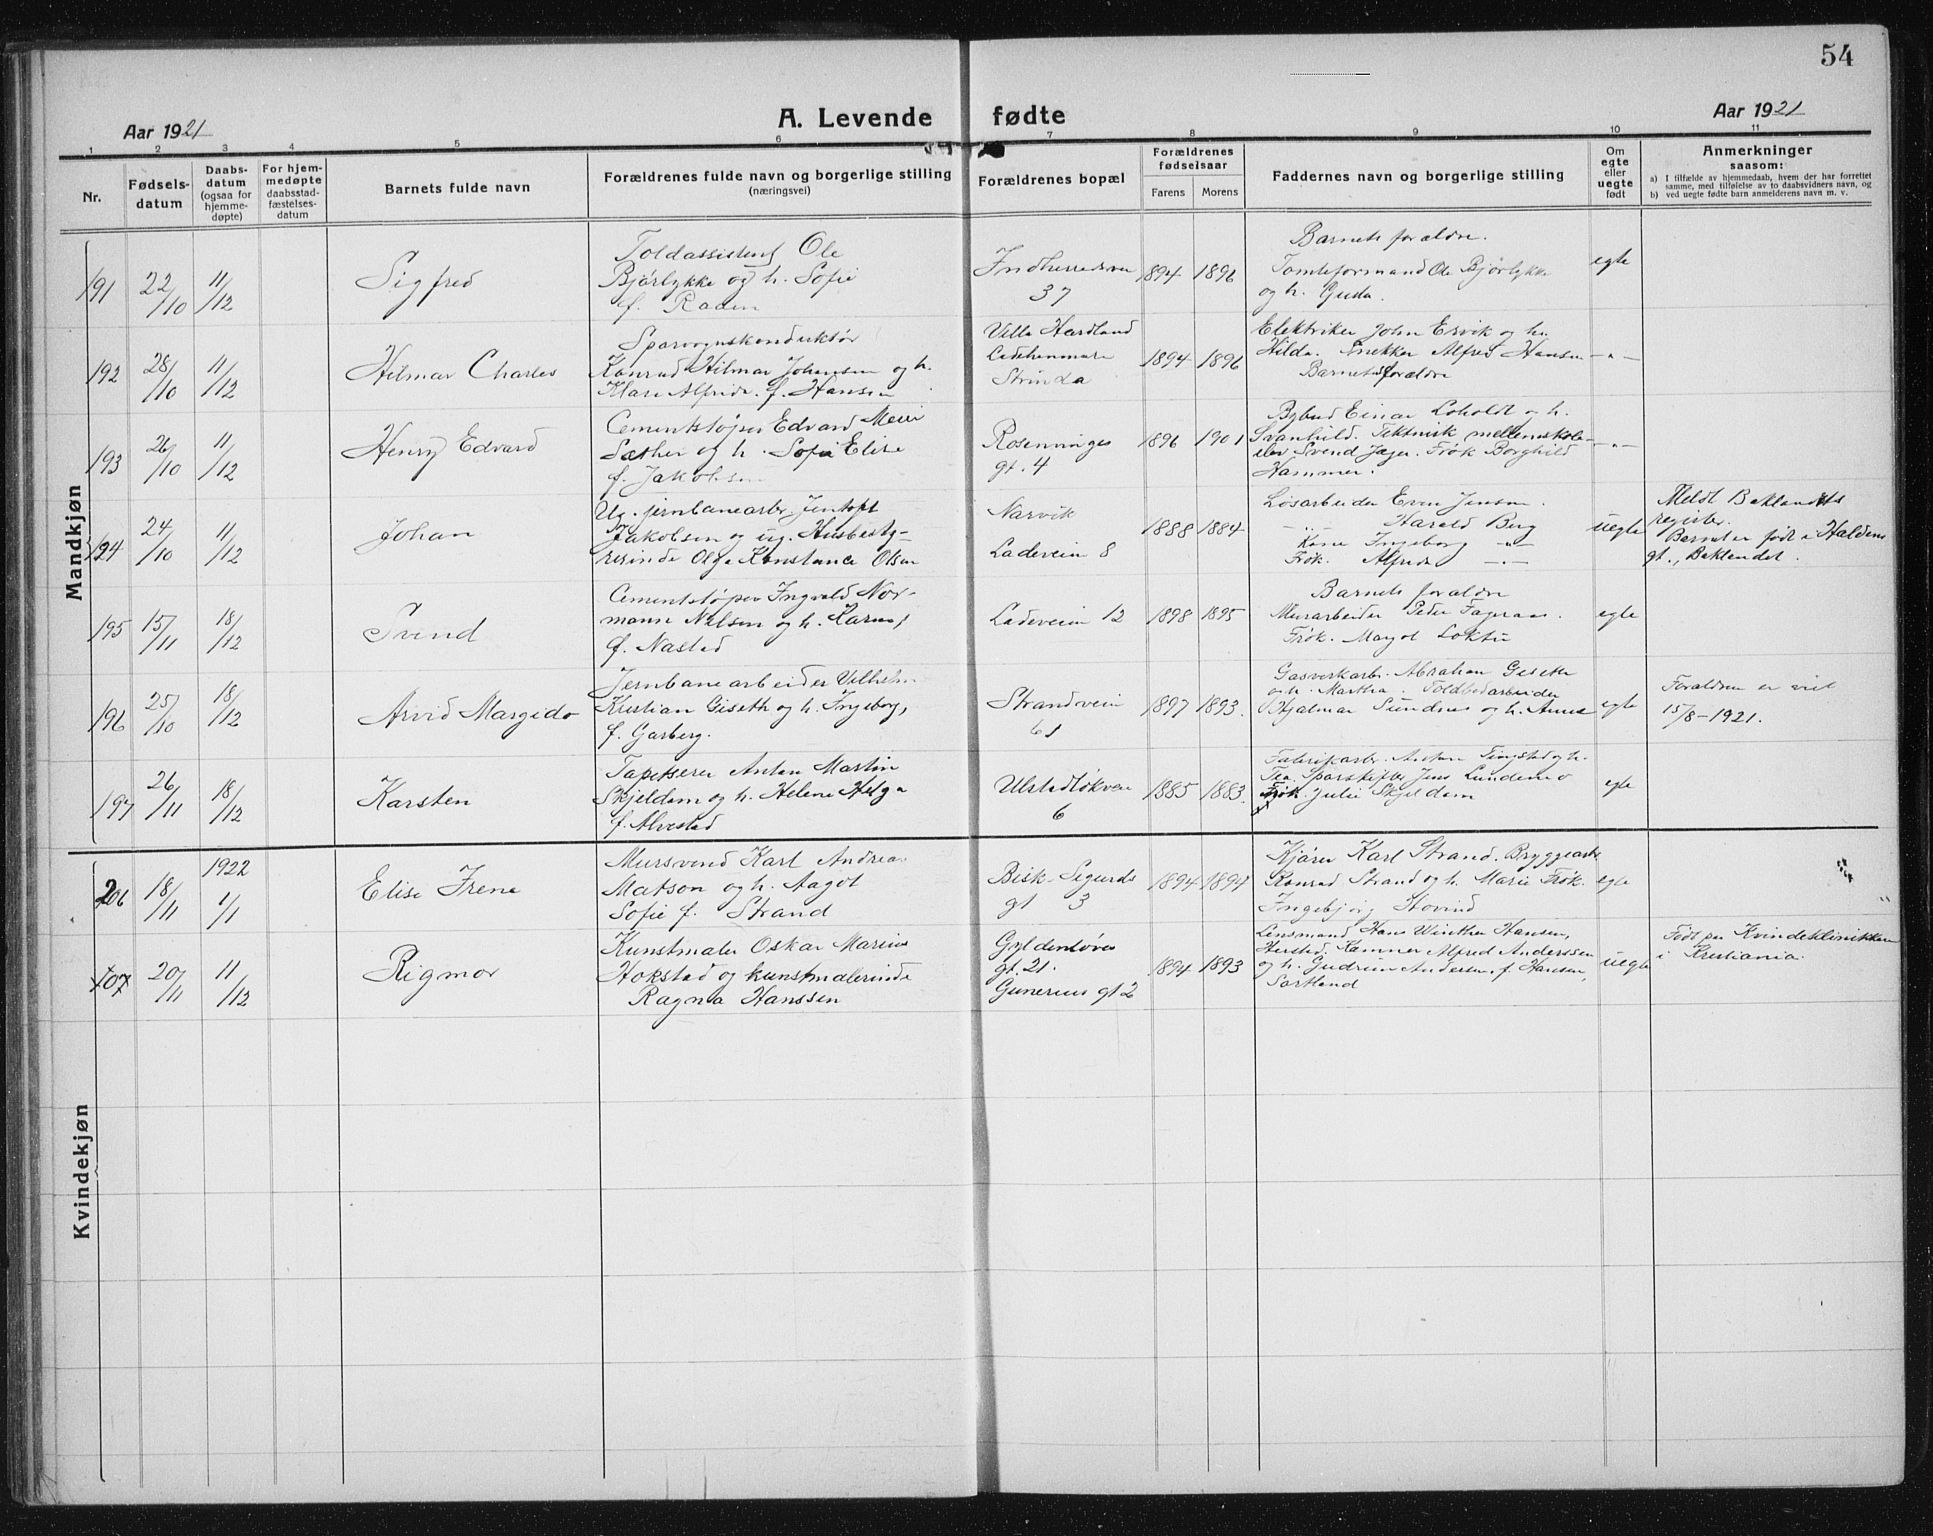 54
A. Levende fødte
Aar 1921
Aar 1921
1 2 3 4 5 6 7 8 9 10 11
Nr.
Fødsels-
datum
Daabs-
datum
(ogsaa for
hjemme-
døpte)
For hjem-
medøpte
daabsstad-
fæstelses-
datum
Barnets fulde navn
Forældrenes fulde navn og borgerlige stilling
(næringsvei)
Forældrenes bopæl
Forældrenes
fødselsaar
Farens
Morens
Faddernes navn og borgerlige stilling
Om
egte
eller
uegte
født
Anmerkninger
saasom:
a) I tilfælde av hjemmedaab, hvem der har forrettet
samme, med tilføielse av to daabsvidners navn, og
b) ved uegte fødte barn anmelderens navn m. v.
Mandkjøn
191 22/10 11/12
Sigfred
Toldassistent Ole
Bjørlykke og h. Sofie
f. Raden
Indherredsvei
37
1894 1896
Barnets forældre.
Tomteformand Ole Bjørlykke
og h. Guda.
egte
192 28/10 11/12
Hilmar Charles
Sporvognskonduktør
Konrad Hilmar Johansen og h.
Klara Alfrida f. Hansen
Villa Hardland
Ladehammeren
Strinda
1894 1896
Elektriker John Ervik og h.
Hilda. Snekker Alfred Hansen
Barnets forældre
-"-
193 26/10 11/12
Henry Edvard
Cementstøper Edvard Meier
Sæther og h. Sofie Elise
f. Jakobsen
Rosenvinges
gt. 4
1896 1901
Bybud Einar Loholdt og h.
Svanhild. Teknisk mellemskole-
elev Svend Jæger. Frøk Borghild
Hammer.
-"-
194 24/10 11/12
Johan
Ug. jernbanearb. Jentoft
Jakobsen og ug. Husbesty-
rerinde Olga Konstance Olsen
Narvik
Ladeveien 8
1888 1884
Løsarbeider Even Jensen.
-"- Harald Berg
Kone Ingeborg -"-
Frøk. Alfrida -"-
uegte
Meldt Baklandets
register.
Barnet er født i Haldens
gt., Baklandet.
195 15/11 18/12
Svend
Cementstøper Ingvald Nor-
mann Nilsen og h. Karen
f. Nastad
Ladeveien 12
1898 1895
Barnets forældre
Murarbeider Peder Fageraas.
Frøk. Margot Loktu
egte
196 25/10 18/12
Arvid Margido
Jernbanearbeider Vilhelm
Kristian Giseth og h. Ingeborg,
f. Garberg.
Strandveien
61
1897 1893.
Gasverkarb. Abraham Giseth
og h. Martha. Toldbodarbeider
Hjalmar Sundnes og h. Anna
egte
Forældrene er viet
15/8-1921.
197 26/11 18/12
Karsten
Tapetserer Anton Martin
Skjeldam og h. Helene Helga
f. Alvestad
Ulstadløkveien
6
1885 1883.
Fabrikarb. Anton Tingstad og h.
Tea. Jens Lundemo
Frøk. Julie Skjeldam
egte
Kvindekjøn
206 18/11 1922 1/1
Elise Irene
Mursvend Karl Andreas
Matson og h. Aagot
Sofie f. Strand
Bisk. Sigurds
gt 3
1894 1894
Kjører Karl Strand. Bryggearb.
Konrad Strand og h. Marie Frøk.
Ingebjørg Hovind
egte
207 20/11 11/12
Rigmor
Kunstmaler Oskar Marius
Hokstad og kunstmalerinde
Ragna Hanssen
Gyldenløves
gt. 21.
Gunerius gt 2
1894 1893
Lensmand Hans Winther Hansen,
Herstad. Alfred Anderssen
og h. Gudrun Andersen f. Hansen,
Sortland
uegte
Født paa Kvindeklinikken
i Kristiania.